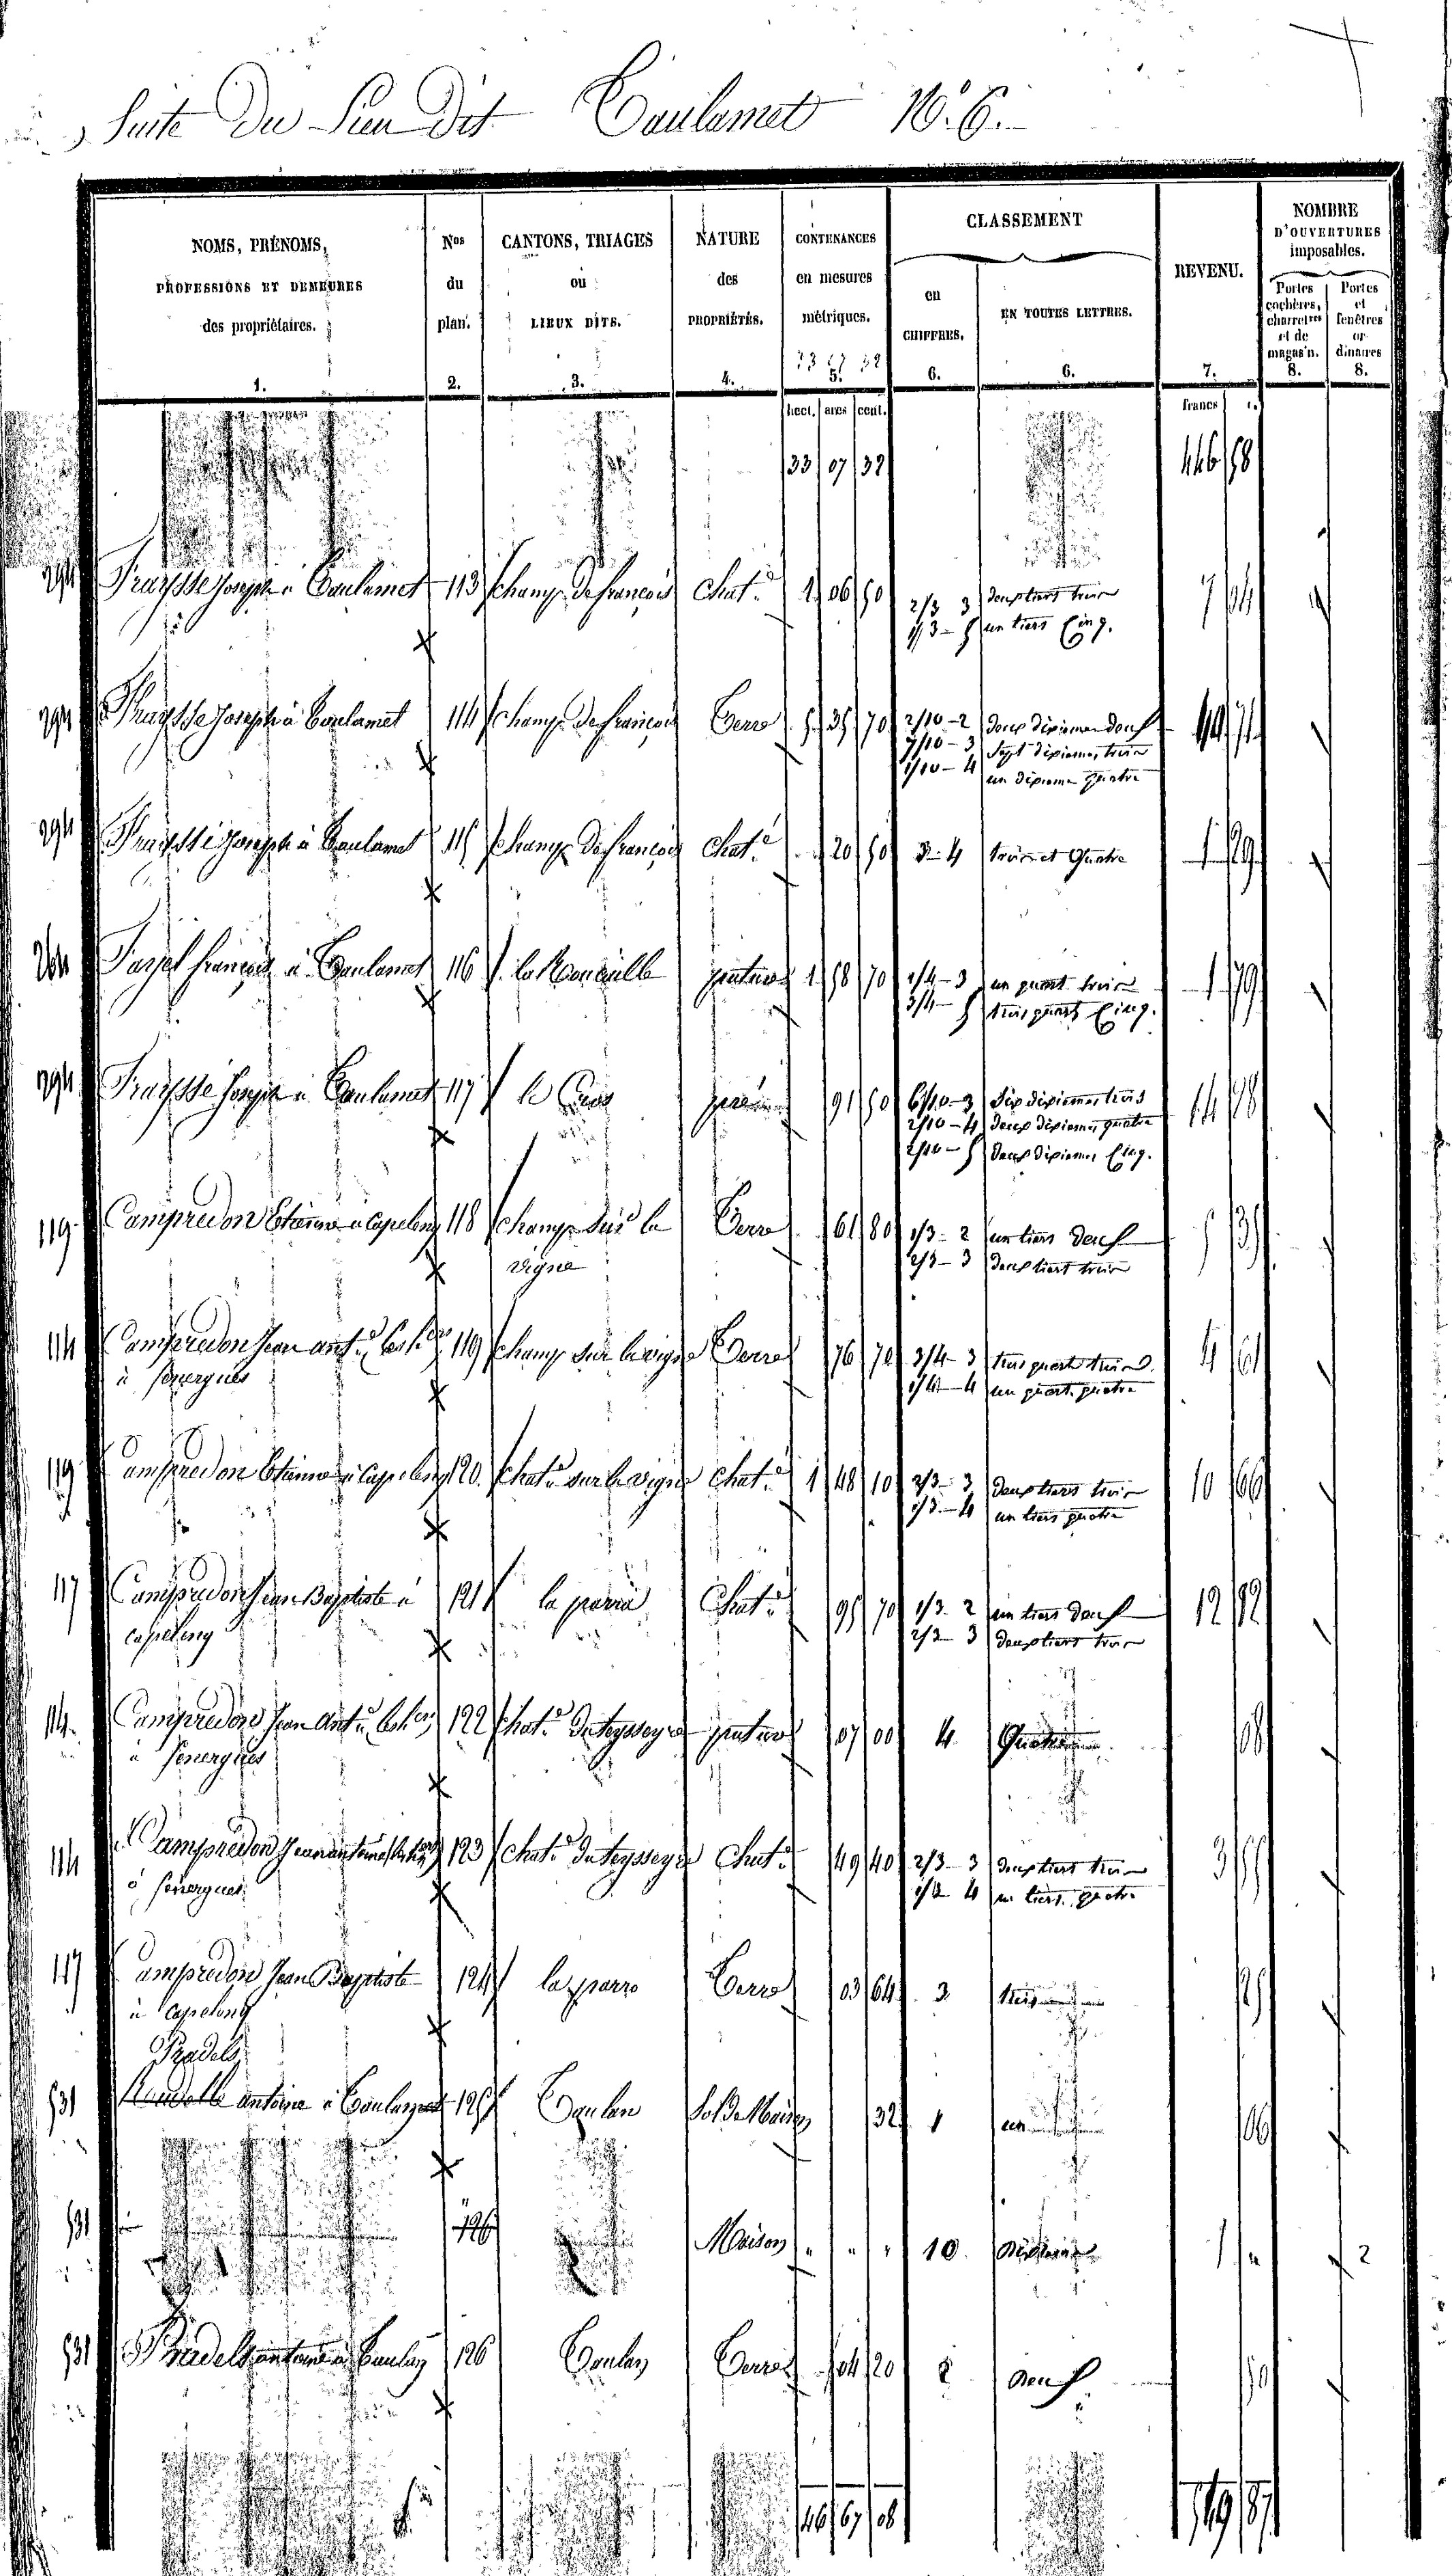 Suite Du Lieu Dit Caulamet N.° 6.
NOMS, PRÉNOMS,
PROFESSIONS ET DEMEURES
des propriétaires.
1.
Nos
du
plan.
2.
CANTONS, TRIAGES
ou
LIEUX DITS.
3.
NATURE
des
PROPRIÉTÉS.
4.
CONTENANCES
en mesures
métriques.
5.
CLASSEMENT
en
CHIFFRES.
6.
EN TOUTES LETTRES.
6.
REVENU.
7.
NOMBRE
D'OUVERTURES
imposables.
Portes
cochères,
charret.res
et de
magas'n.
8.
Portes
et
fenêtres
or-
dinaires
8.
hect. ares cent. francs c.
33 07 32 446 58
294 Fraysse Joseph à Caulamet 113 champ De françois Chat.é 1 06 50 2/3 3 deux tiers trois 7 64
1/3 - 5 un tiers Cinq.
294 Fraysse Joseph à Caulamet 114 champ De françois Terre 5 35 70 2/10 - 2 deux dixiemes deux
7/10 - 3 Sept dixiemes trois
1/10 - 4 un dixieme quatre
294 Fraysse Joseph à Caulamet 115 champ De françois Chat.é 20 50 3 - 4 trois et Quatre 1 29
françois à Caulamet 116 pature 1 58 70 1/4 - 3 un quart trois 1 79
3/4 - 5 trois quarts Cinq.
294 Fraysse Joseph à Caulamet 117 le 91 50 6/10 - 3 Six dixiemes trois 14 28
2/10 - 4 deux dixiemes quatre
2/10 - 5 deux dixiemes Cinq.
119 Campredon Etienne à Capelong 118 champ sur la Terre 61 80 1/3 - 2 un tiers deux 5 35
vigne 2/3 - 3 deux tiers trois
114 Campredon Jean ant.e 119 champ sur la vigne Terre 76 70 3/4 - 3 trois quarts trois 4 61
à Senergues 1/4 - 4 un quart quatre
119 Campredon Etienne à Capelong 120. chat.é sur la vigne Chat.é 1 48 10 2/3 - 3 deux tiers trois 10 66
1/3 - 4 un tiers quatre
117 Campredon Jean Baptiste à 121 la parra Chat.é 95 70 1/3 2 un tiers deux 12 92
Capelong 2/3 - 3 deux tiers trois
114. Campredon Jean Ant.e 122 chat.é De teysseyre pature 07 00 4 Quatre 08
à Senergues
114 Campredon Jean antoine 123 chat.é De teysseyre Chat.é 49 40 2/3 - 3 deux tiers trois 3 55
à Senergues 1/3 4 un tiers quatre
117 Campredon Jean Baptiste 124 la parro Terre 03 64 3 trois 25
à Capelong
Pradels
531 antoine à Caulamet 125 Caulan Sol De Maison 32 1 un 06
531 126 Maison " " " 10 1 " 2
531 Pradels antoine à Caulan 126 Caulan Terre 04 20 2 deux 50
46 67 08 549 87